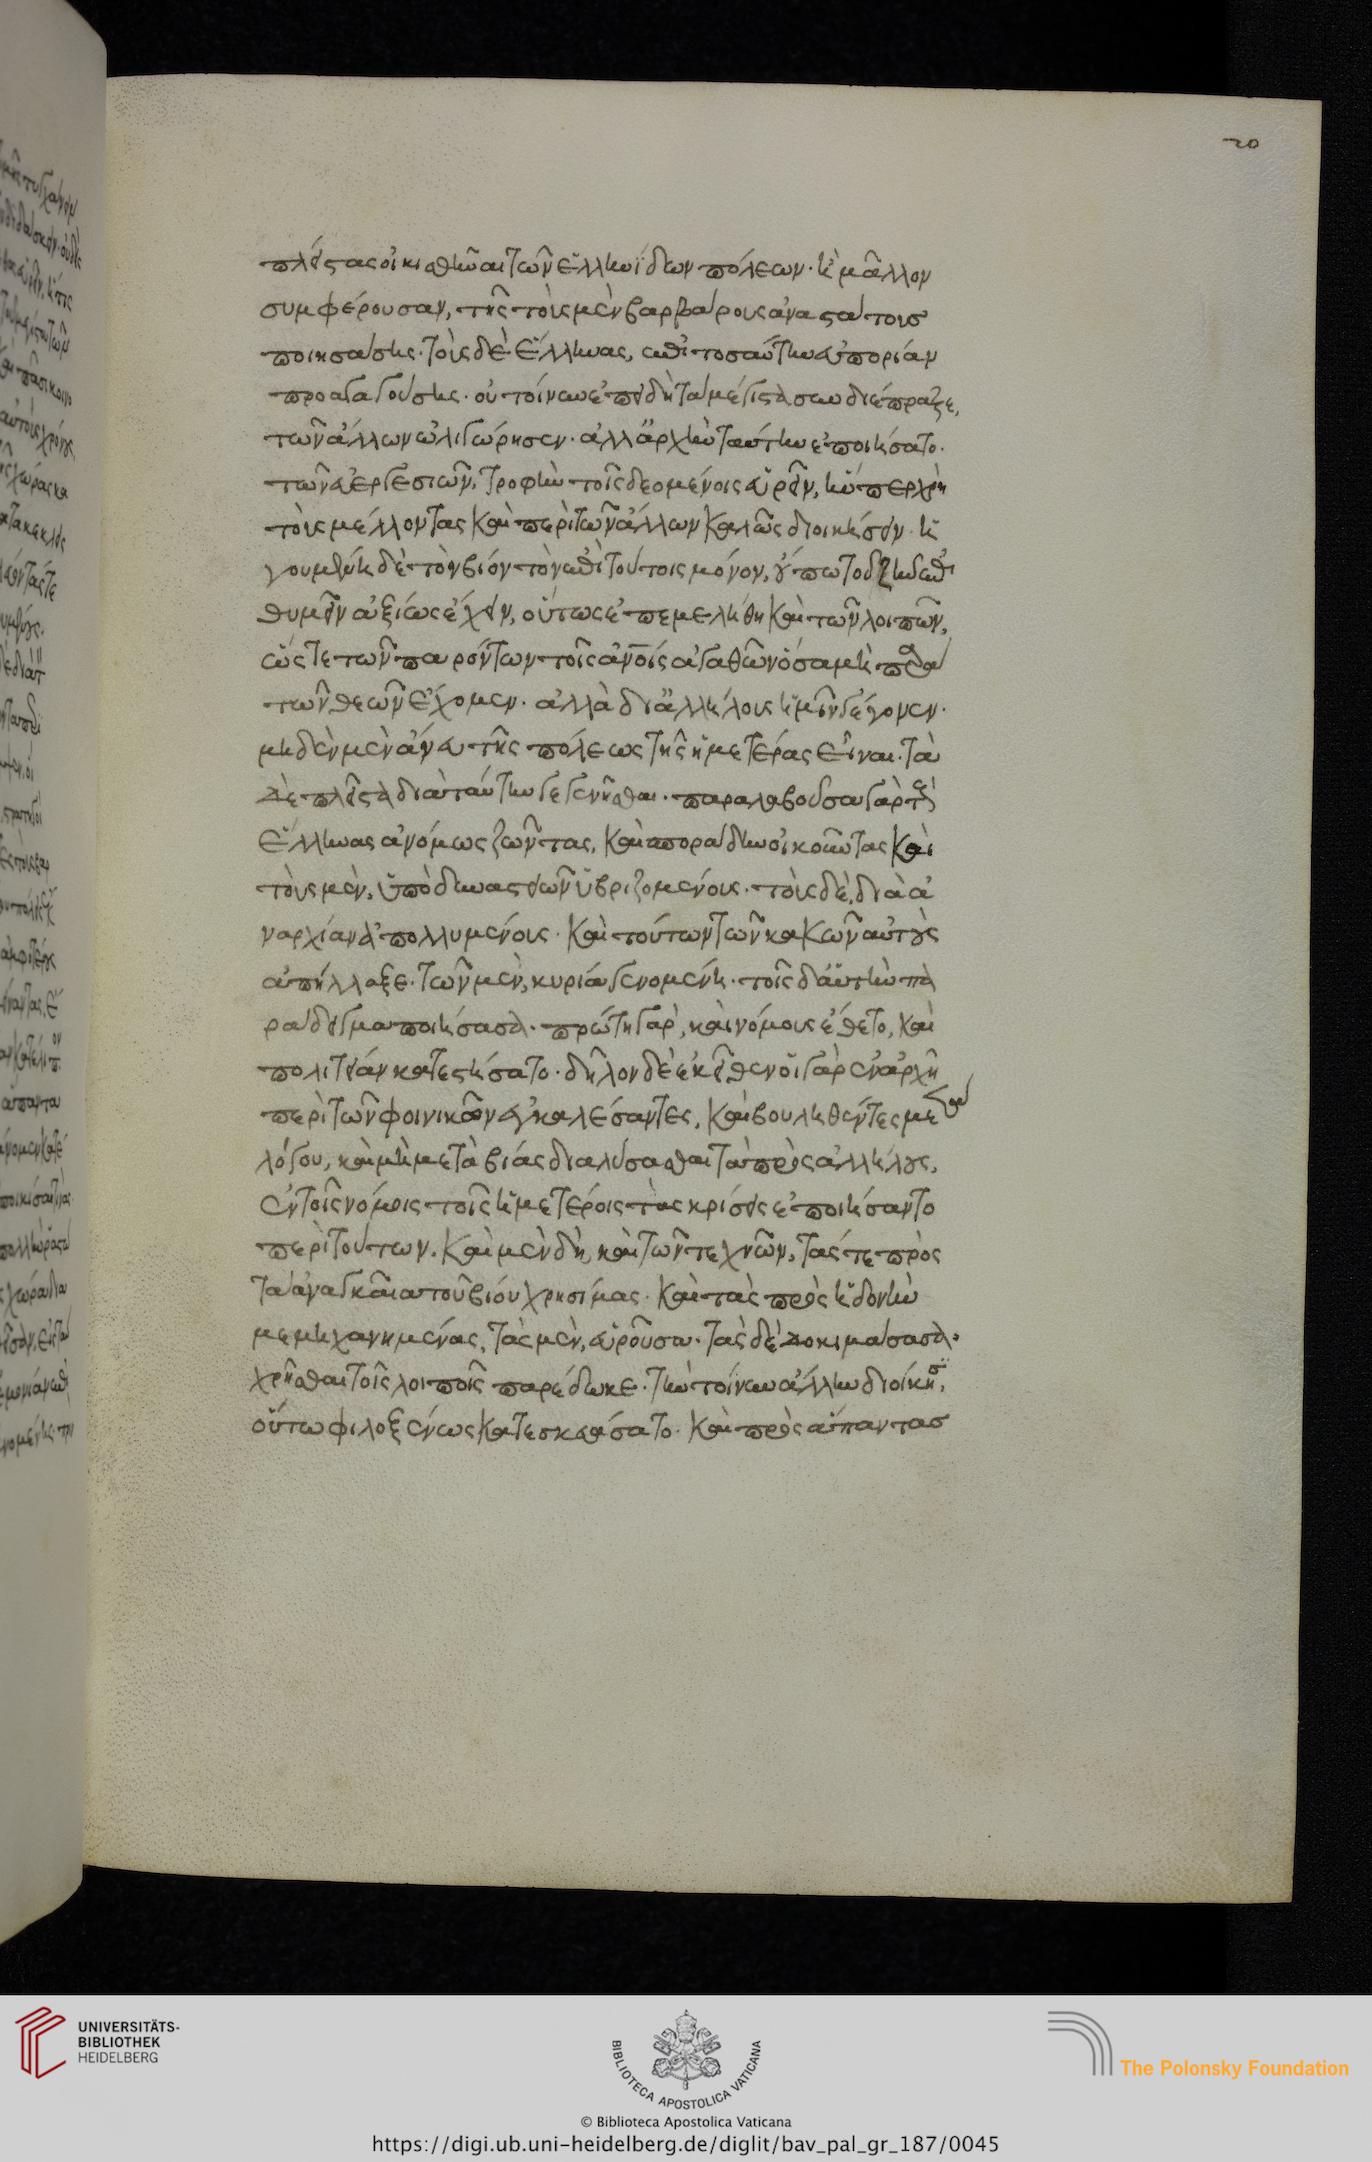 20
πλείστας οἰκισθῆναι τῶν ἑλληνίδων πόλεων· ἢ μᾶλλον
συμφέρουσαν, τῆς τοὺς μὲν βαρβάρους ἀναστάτους
ποιησάσης· τοὺς δὲ ἕλληνας, ἐπὶ τοσαύτην εὐπορίαν
προαγαγούσης· οὐ τοίνυν ἐπειδὴ τὰ μέγιστα συνδιέπραξε,
τῶν ἄλλων ὠλιγώρησεν· ἀλλ' ἀρχὴν ταύτην ἐποιήσατο·
τῶν εὐεργεσιῶν, τροφὴν τοῖς δεομένοις εὑρεῖν, ἥνπερ χρὴ
τοὺς μέλλοντας καὶ περὶ τῶν ἄλλων καλῶς διοικήσειν· ἡ
γουμένη δὲ τὸν βίον τὸν ἐπὶ τούτοις μόνον, οὔπω τοῦ ζῆν ἐπι
θυμεῖν ἀξίως ἔχειν, οὕτως ἐπεμελήθη καὶ τῶν λοιπῶν,
ὥστε τῶν παρόντων τοῖς ἀν̅οις ἀγαθῶν ὅσα μὴ παρὰ
τῶν θεῶν ἔχομεν· ἀλλὰ δι' ἀλλήλους ἡμῖν γέγονεν·
μηδὲν μὲν ἄνευ τῆς πόλεως τῆς ἡμετέρας εἶναι· τὰ
δὲ πλεῖστα διὰ ταύτην γεγενῆσθαι· παραλαβοῦσα γὰρ τοὺς
ἕλληνας ἀνόμως ζῶντας, καὶ σποράδην οἰκοῦντας καὶ
τοὺς μὲν, ὑπὸ δυναστειῶν ὑβριζομένους· τοὺς δὲ, διὰ ἀ
ναρχίαν ἀπολλυμένους· καὶ τούτων τῶν κακῶν αὐτοὺς
ἀπήλλαξε· τῶν μὲν, κυρία γενομένη· τοῖς δ' αὑτὴν πα
ράδειγμα ποιήσασα· πρώτη γὰρ, καὶ νόμους ἔθετο, καὶ
πολιτείαν κατεστήσατο· δῆλον δὲ ἐκεῖθεν οἱ γὰρ ἐν ἀρχῇ
περὶ τῶν φοινικῶν ἐγκαλέσαντες, καὶ βουληθέντες μετὰ
λόγου, καὶ μὴ μετὰ βίας διαλύσασθαι τὰ πρὸς ἀλλήλους,
ἐν τοῖς νόμοις τοῖς ἡμετέροις τὰς κρίσεις ἐποιήσαντο
περὶ τούτων· καὶ μὲν δὴ, καὶ τῶν τεχνῶν, τάς τε πρὸς
τἀναγκαῖα τοῦ βίου χρησίμας· καὶ τὰς πρὸς ἡδονὴν
μεμηχανημένας, τὰς μὲν, εὑροῦσα· τὰς δὲ δοκιμάσασα·
χρῆσθαι τοῖς λοιποῖς παρέδωκε· τὴν τοίνυν ἄλλην διοίκησιν,
οὕτω φιλοξένως κατεσκευάσατο· καὶ πρὸς ἅπαντας
UNIVERSITÄTS-
BIBLIOTHEK
HEIDELBERG
BIBLIOTECA APOSTOLICA VATICANA
The Polonsky Foundation
© Biblioteca Apostolica Vaticana
https://digi.ub.uni-heidelberg.de/diglit/bav_pal_gr_187/0045